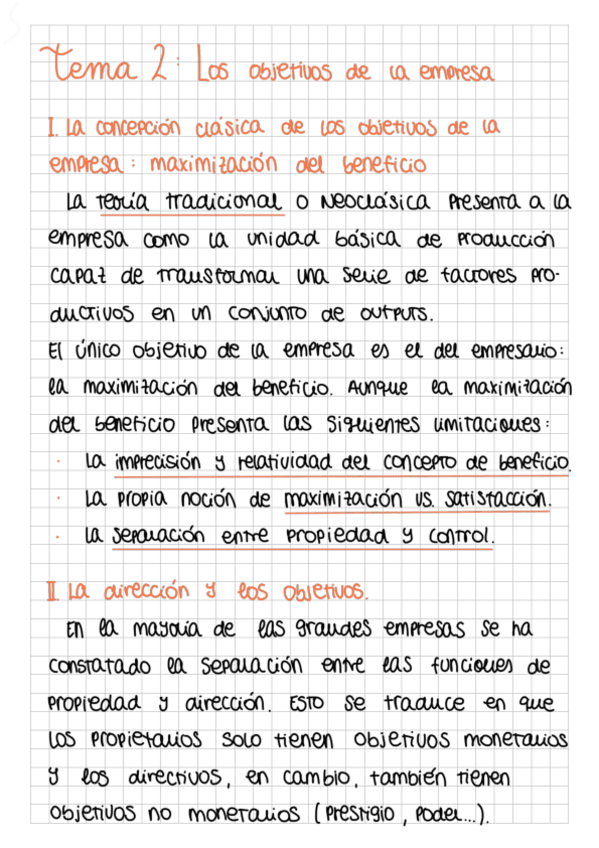 Tema 2: Los objetivos de la empresa
I. La concepción clásica de los objetivos de la
empresa: maximización del beneficio
La teoría tradicional o Neoclásica presenta a la
empresa como la unidad básica de producción
capaz de transformar una serie de factores pro-
ductivos en un conjunto de outputs.
El único objetivo de la empresa es el del empresario:
la maximización del beneficio. Aunque la maximización
del beneficio presenta las siguientes limitaciones:
· La imprecisión y relatividad del concepto de beneficio.
· La propia noción de maximización vs. satisfacción.
· La separación entre propiedad y control.
II. La dirección y los objetivos.
En la mayoría de las grandes empresas se ha
constatado la separación entre las funciones de
propiedad y dirección. Esto se traduce en que
los propietarios solo tienen objetivos monetarios
y los directivos, en cambio, también tienen
objetivos no monetarios (prestigio, poder...).